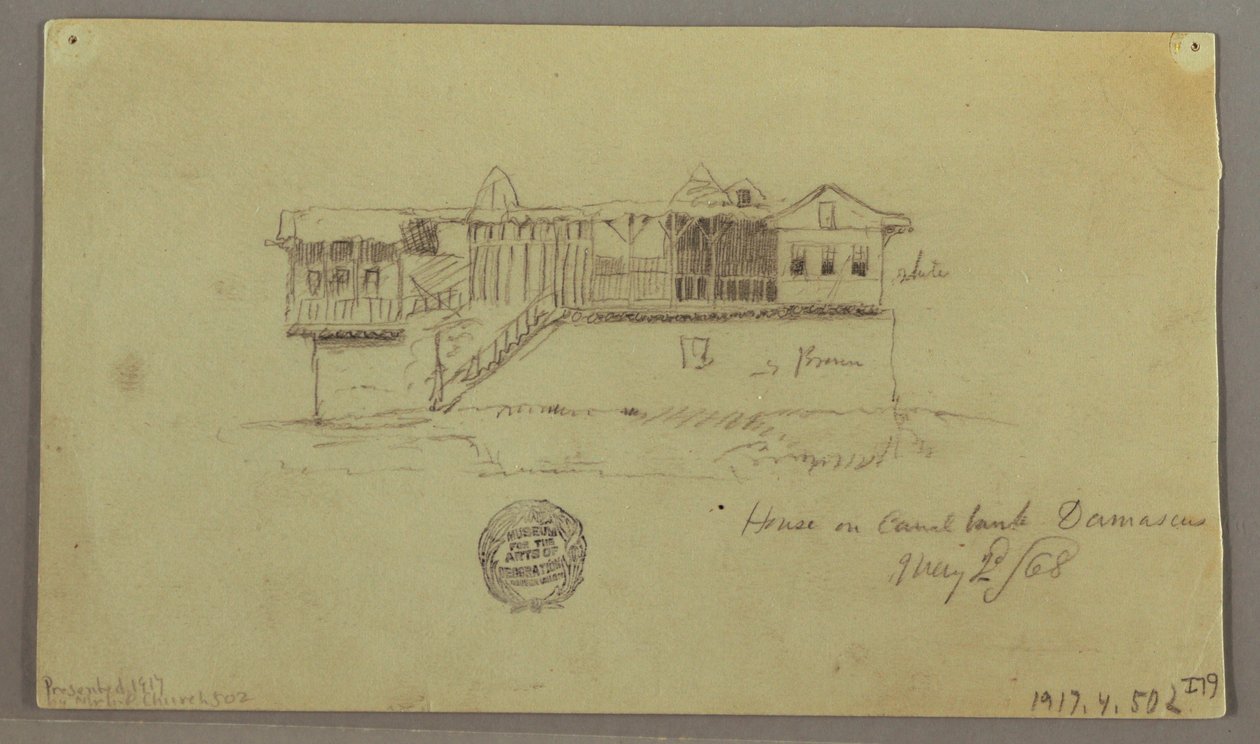 white
Brown
House on Canal bank Damascus
May 2d /68
MUSEUM
FOR THE
ARTS OF
DECORATION
Presented 1917
by Church 502
1917.4.502
I79